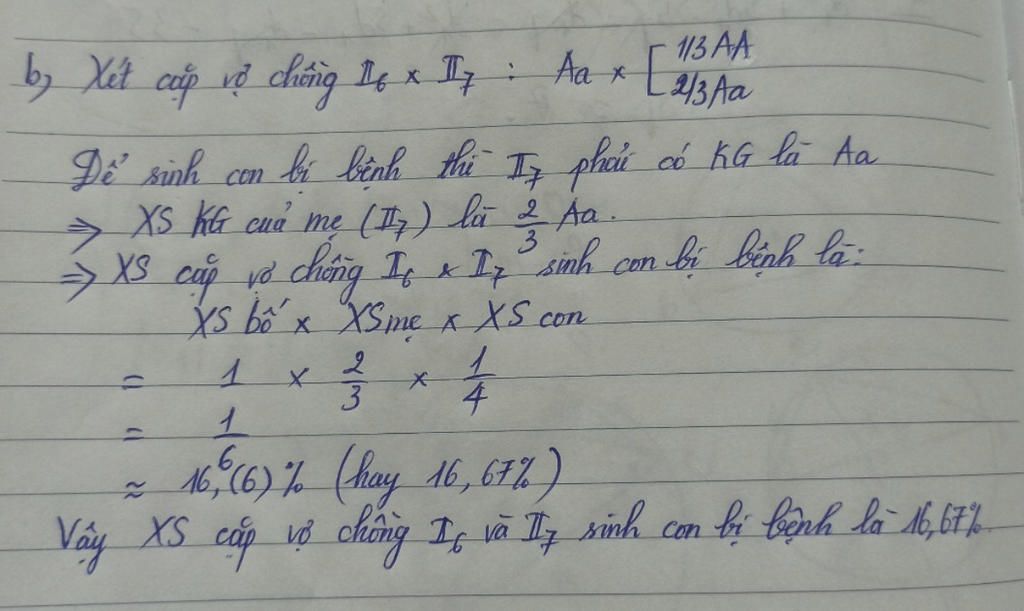 b, Xét cặp vợ chồng II6 x II7 : Aa x [ 1/3 AA
2/3 Aa
Để sinh con bị bệnh thì II7 phải có KG là Aa
=> XS KG của mẹ (II7) là 2/3 Aa.
=> XS cặp vợ chồng II6 x II7 sinh con bị bệnh là:
XS bố x XS mẹ x XS con
= 1 x 2/3 x 1/4
= 1/6
≈ 16,(6)% (hay 16,67%)
Vậy XS cặp vợ chồng II6 và II7 sinh con bị bệnh là 16,67%.